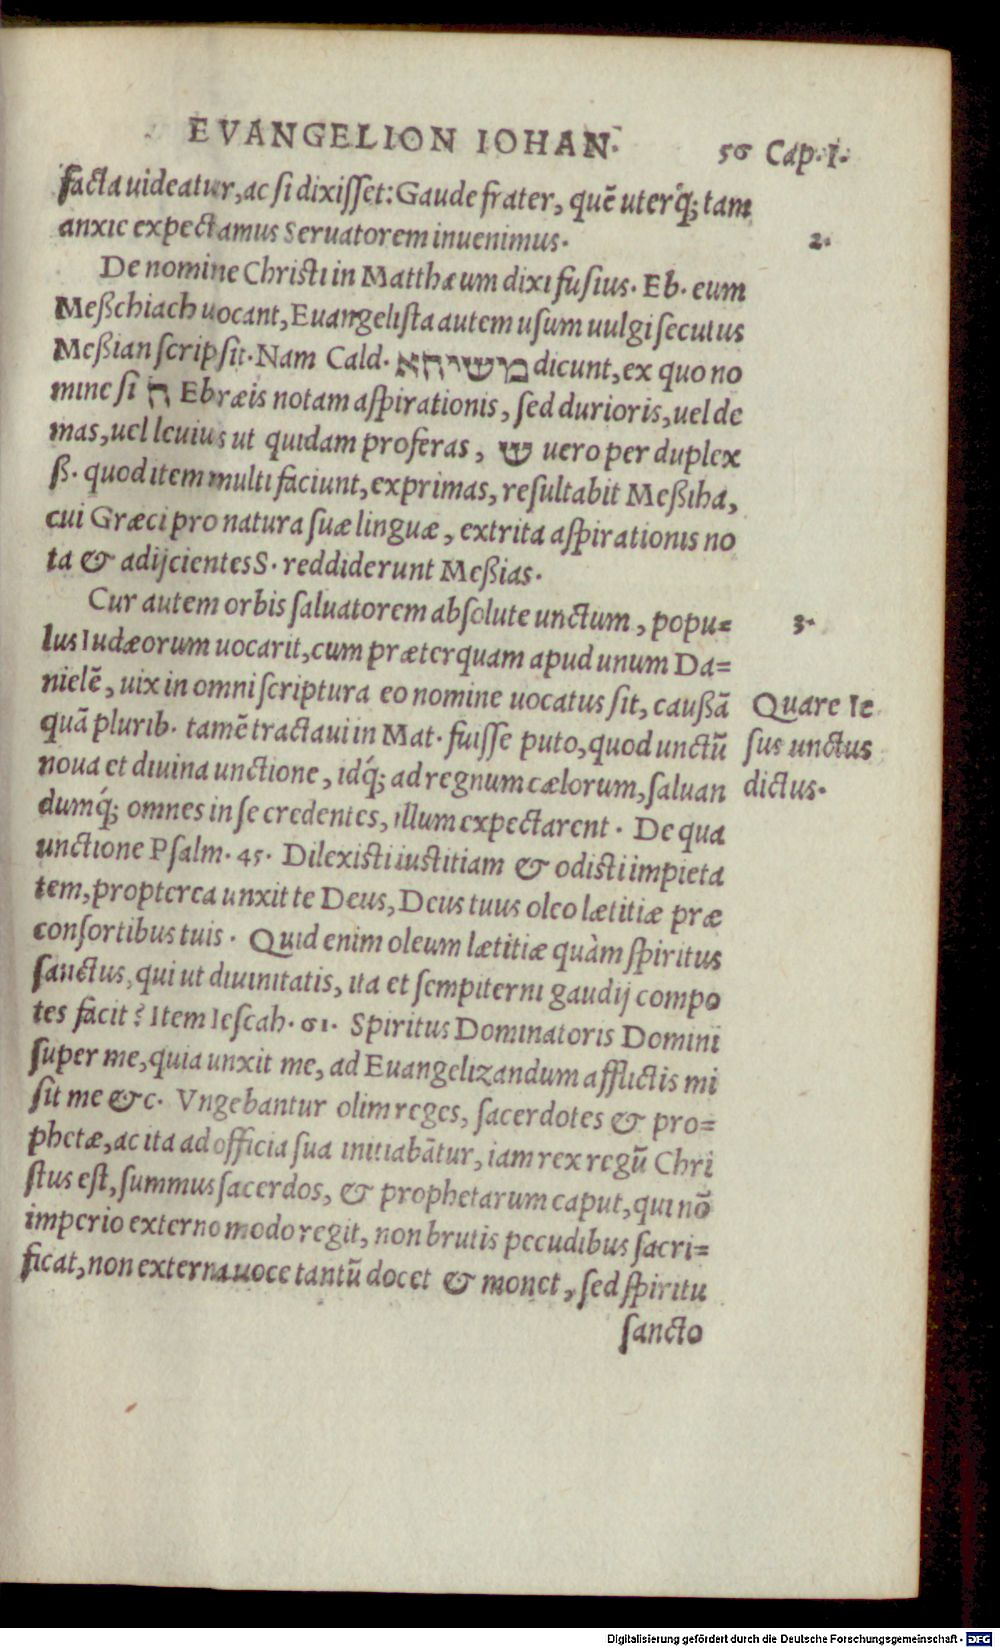 EVANGELION IOHAN̄.
56 Cap. I.
facta uideatur, ac si dixisset: Gaude frater, quẽ uterq́; tam
anxie expectamus Seruatorem inuenimus.
2.
De nomine Christi in Matthæum dixi fusius. Eb. eum
Meßchiach uocant, Euangelista autem usum uulgi secutus
Meßian scripsit. Nam Cald. משיחא dicunt, ex quo no
mine si ח Ebræis notam aspirationis, sed durioris, uel de
mas, uel leuius ut quidam proferas, ש uero per duplex
ß. quod item multi faciunt, exprimas, resultabit Meßiha,
cui Græci pro natura suæ linguæ, extrita aspirationis no
ta & adijcientes S. reddiderunt Meßias.
Cur autem orbis saluatorem absolute unctum, popu=
3.
lus Iudæorum uocarit, cum præterquam apud unum Da=
nielẽ, uix in omni scriptura eo nomine uocatus sit, caußã
Quare Ie
quã plurib. tamẽ tractaui in Mat. fuisse puto, quod unctũ
sus unctus
noua et diuina unctione, idq́; ad regnum cælorum, saluan
dictus.
dumq́; omnes in se credentes, illum expectarent. De qua
unctione Psalm. 45. Dilexisti iustitiam & odisti impieta
tem, propterea unxit te Deus, Deus tuus oleo lætitiæ præ
consortibus tuis. Quid enim oleum lætitiæ quàm spiritus
sanctus, qui ut diuinitatis, ita et sempiterni gaudij compo
tes facit? Item Iescah. 61. Spiritus Dominatoris Domini
super me, quia unxit me, ad Euangelizandum afflictis mi
sit me &c. Vngebantur olim reges, sacerdotes & pro=
phetæ, ac ita ad officia sua initiabãtur, iam rex regũ Chri
stus est, summus sacerdos, & prophetarum caput, qui nõ
imperio externo modo regit, non brutis pecudibus sacri=
ficat, non externa uoce tantũ docet & monet, sed spiritu
sancto
Digitalisierung gefördert durch die Deutsche Forschungsgemeinschaft - DFG